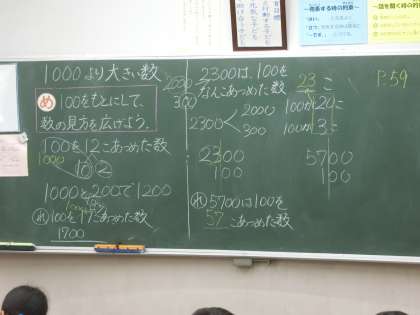 1000より大きい数
め 100をもとにして、
数の見方を広げよう。
100を12こあつめた数
1000
10 2
1000と200で1200
れ 100を17こあつめた数
1700
2300は、100を
なんこあつめた数
2300
2000
300
2300
100
れ 5700は100を
57 こあつめた数
23こ
100が20こ
100が3こ
5700
100
P.59